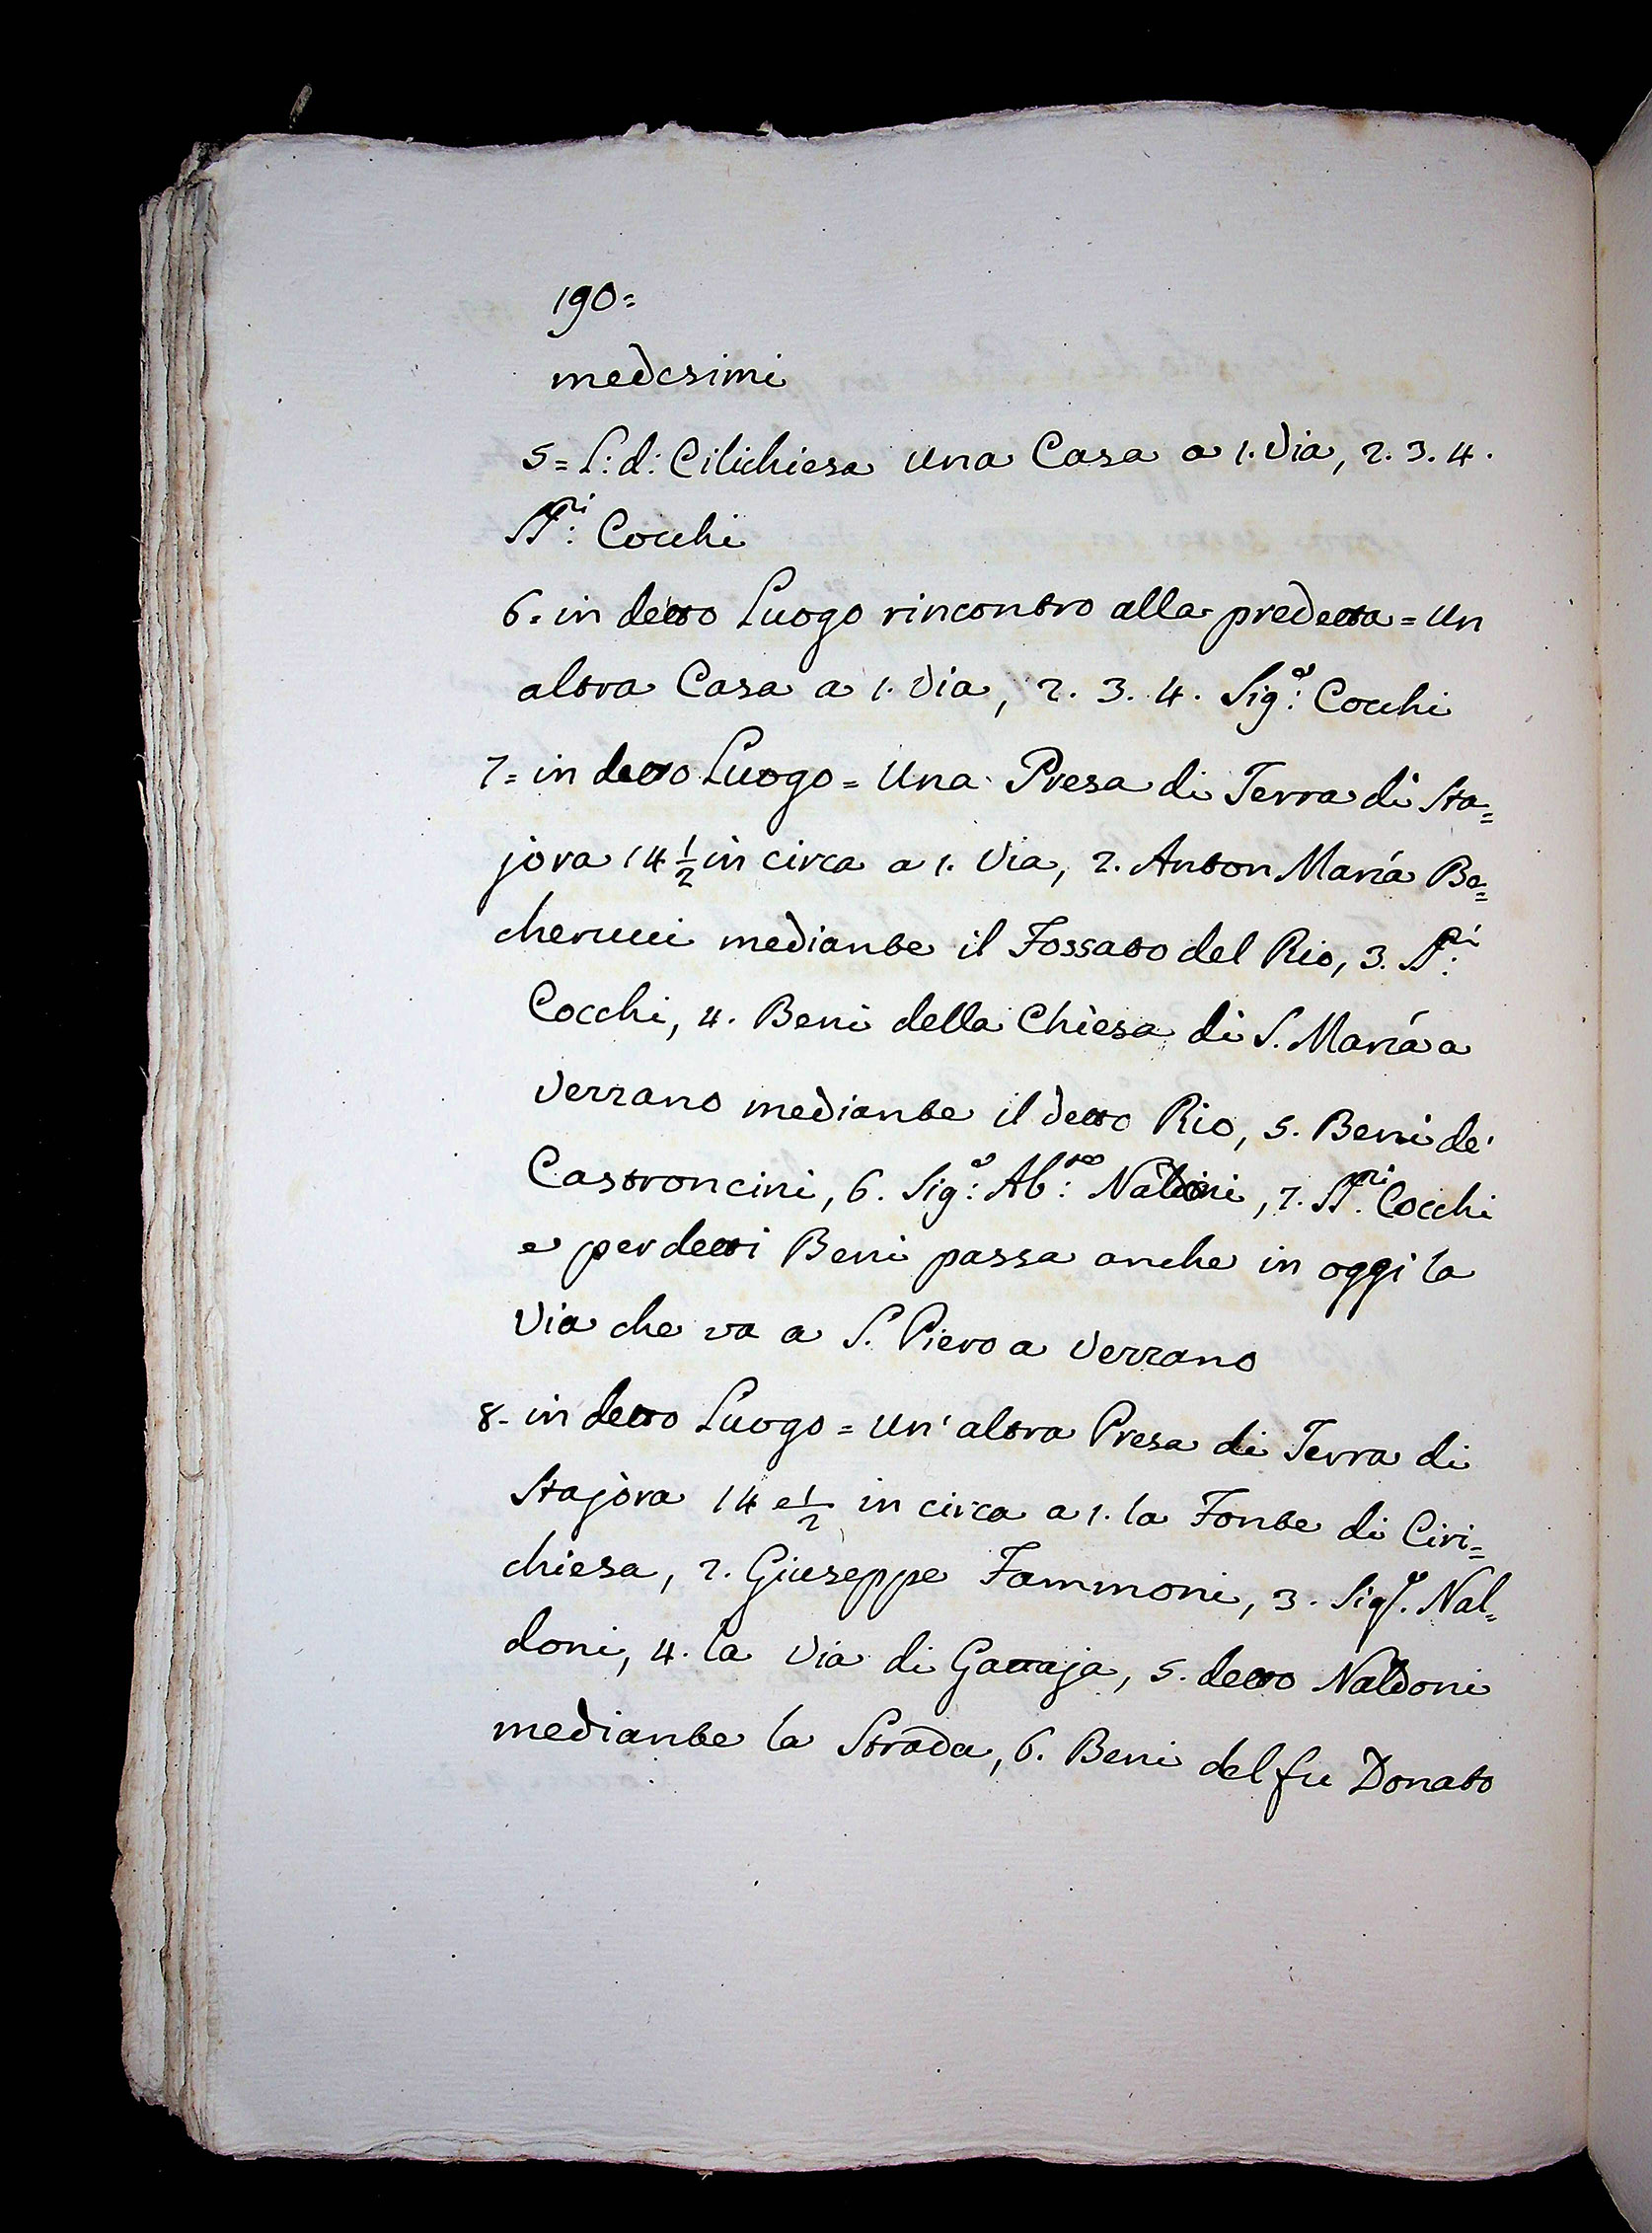 190=
medesimi
5= L: d: Cilichiesa una Casa a 1. Via, 2. 3. 4.
SS.ri: Cocchi
6. in detto Luogo rincontro alla predetta = Un
altra Casa a 1. Via, 2. 3. 4. Sig.e: Cocchi
7= in detto Luogo = Una Presa di Terra di Sta=
jora 14 1/2 in circa a 1. Via, 2. Anton Maria Be=
cherucci mediante il Fossato del Rio, 3. SS.ri:
Cocchi, 4. Beni della Chiesa di S. Maria a
Verzano mediante il detto Rio, 5. Beni de'
Castroncini, 6. Sig.e: Ab.te: Naldoni, 7. SS.ri Cocchi
e per detti Beni passa anche in oggi la
Via che va a S. Piero a Verzano
8- in detto Luogo = un' altra Presa di Terra di
Stajora 14 e 1/2 in circa a 1. la Fonte di Ciri=
chiesa, 2. Giuseppe Fammoni, 3. Sig.e Nal=
doni, 4. la Via di Gattaja, 5. detto Naldoni
mediante la Strada, 6. Beni del fu Donato